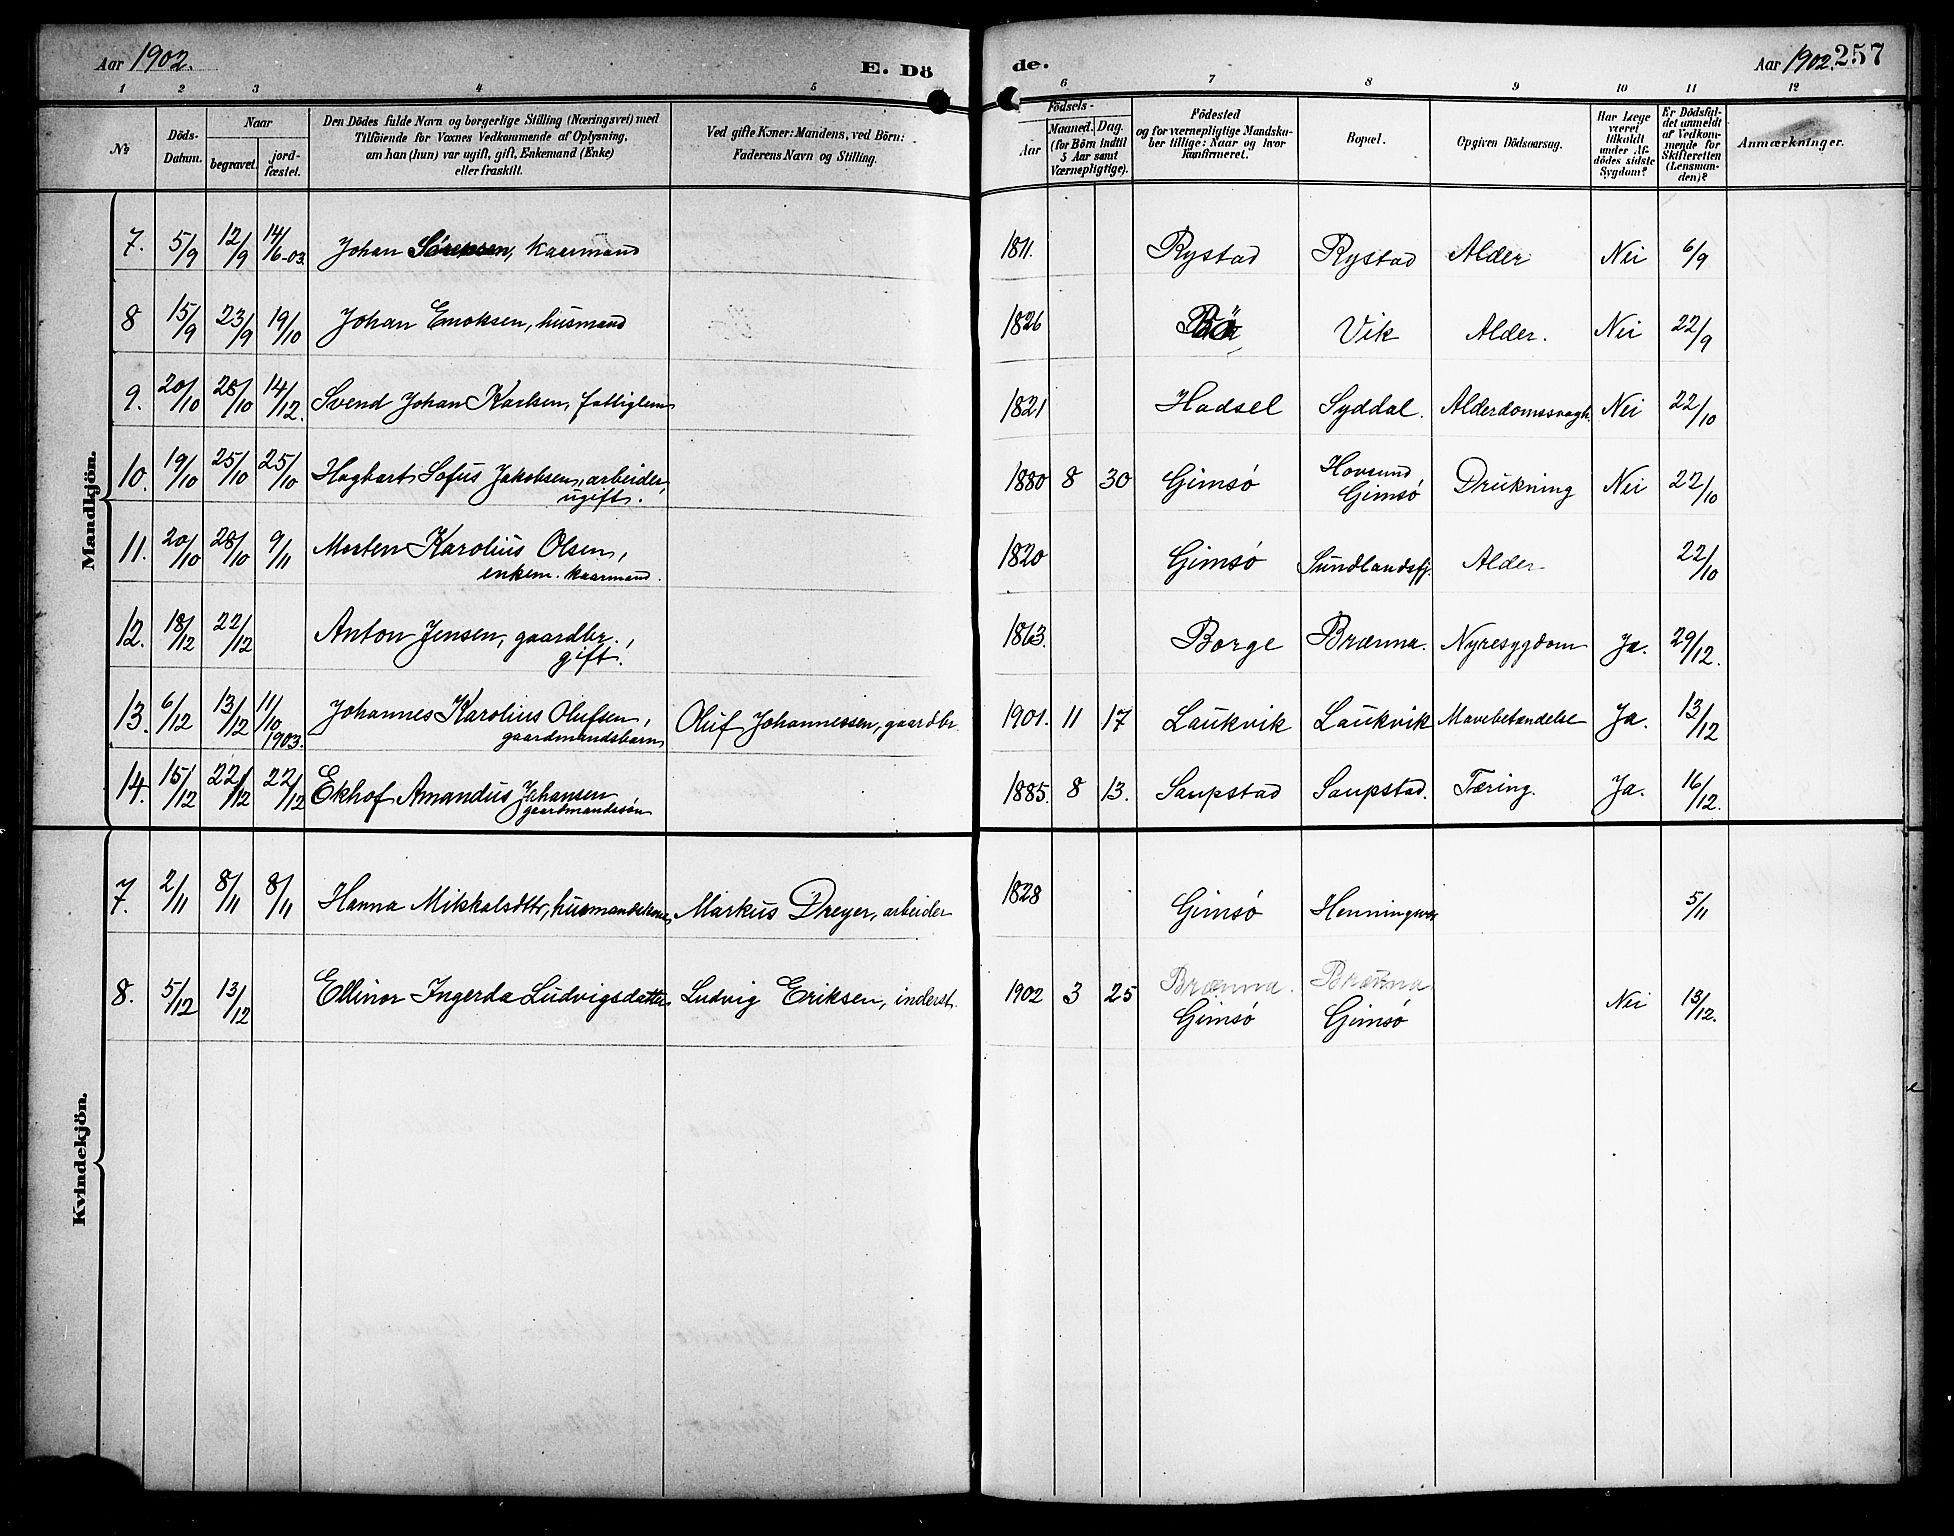 Aar 1902. E. Dö de. Aar 1902. 257
1 2 3 4 5 6 7 8 9 10 11 12
No
Döds-
Datum.
Naar
begravet.
jord-
fæstet.
Den Dödes fulde Navn og borgerlige Stilling (Næringsvei) med
Tilföiende for Voxnes Vedkommende af Oplysning,
om han (hun) var ugift, gift, Enkemand (Enke)
eller fraskilt.
Ved gifte Koner: Mandens, ved Börn:
Faderens Navn og Stilling.
Födsels-
Aar
Maaned. Dag.
(for Börn indtil
5 Aar samt
Værnepligtige).
Födested
og for værnepligtige Mandska-
ber tillige: Naar og hvor
konfirmeret.
Bopæl.
Opgiven Dödsaarsag.
Har Læge
været
tilkaldt
under Af-
dödes sidste
Sygdom?
Er Dödsfal-
det anmeldt
af Vedkom-
mende for
Skifteretten
(Lensman-
den)?
Anmærkninger.
Mandkjön.
7. 5/9 12/9 14/6-03. Johan Sörensen, kaarmand 1811. Rystad Rystad Alder Nei 6/9
8 15/9 23/9 19/10 Johan Enoksen, husmand 1826 Bö Vik Alder. Nei 22/9
9. 20/10 28/10 14/12. Svend Johan Karlsen, fattiglem 1821 Hadsel Syddal. Alderdomssvagh. Nei 22/10
10. 19/10 25/10 25/10 Hagbart Sofus Jakobsen, arbeider, 1880 8 30 Gimsö Hovsund Drukning Nei 22/10
ugift. Gimsö
11. 20/10 28/10 9/11 Morten Karolius Olsen, 1820 Gimsö Sundlandsfj. Alder 22/10
enkem. kaarmand.
12. 18/12 22/12 Anton Jensen, gaardbr., 1863. Borge Brænna. Nyresygdom Ja. 29/12.
gift.
13. 6/12 13/12 11/10 1903. Johannes Karolius Olufsen, Oluf Johannessen, gaardbr. 1901. 11 17 Laukvik Laukvik Mavebetændelse Ja. 13/12
gaardmandsbarn
14. 15/12 22/12 22/12 Ekhof Amandus Johansen 1885. 8 13. Saupstad Saupstad. Tæring. Ja. 16/12.
gaardmandssön
Kvindekjön.
7. 2/11 8/11 8/11 Hanna Mikkalsdtr, husmandskone, Markus Dreyer, arbeider 1828 Gimsö 5/11
8. 5/12 13/12 Ellinor Ingerda Ludvigsdatter Ludvig Eriksen, inderst. 1902 3 25 Brænna. Brænna Nei 13/12.
Gimsö Gimsö